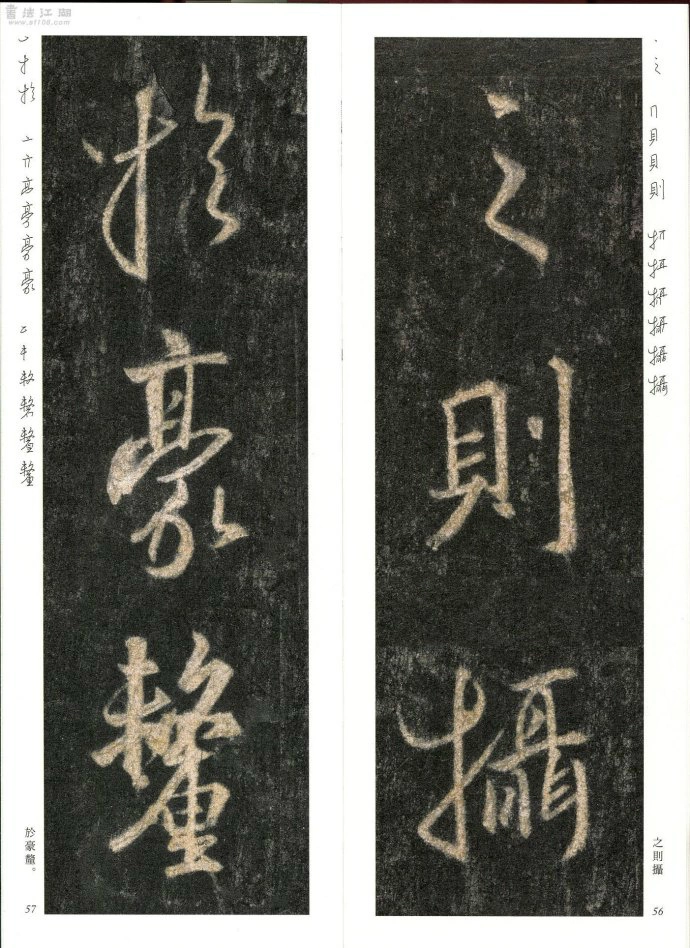 書法江湖
www.sf108.com
之則攝
之則攝
56
於豪釐
於豪釐。
57